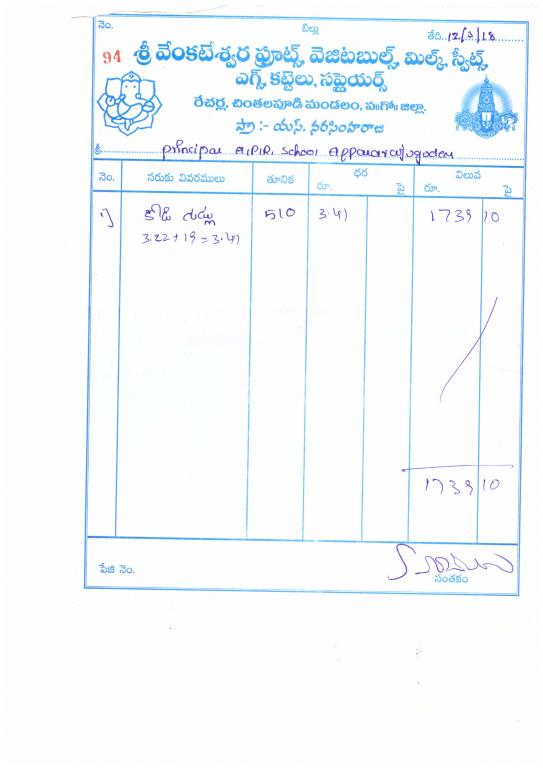 నెం. బిల్లు తేది..12/3/18
94 శ్రీ వేంకటేశ్వర ఫ్రూట్స్, వెజిటబుల్స్, మిల్క్, స్వీట్స్,
ఎగ్స్, కట్టెలు, సప్లైయర్స్
రేచర్ల, చింతలపూడి మండలం, ప॥గో॥ జిల్లా.
ప్రొ :- యస్. నరసింహరాజు
శ్రీ Principal A.P.R. School
నెం. సరుకు వివరములు తూనిక ధర విలువ
రూ. పై రూ. పై
1) కోడి గుడ్లు 510 3.41 1739 10
3.22 + 19 = 3.41
1739 10
పేజి నెం. సంతకం